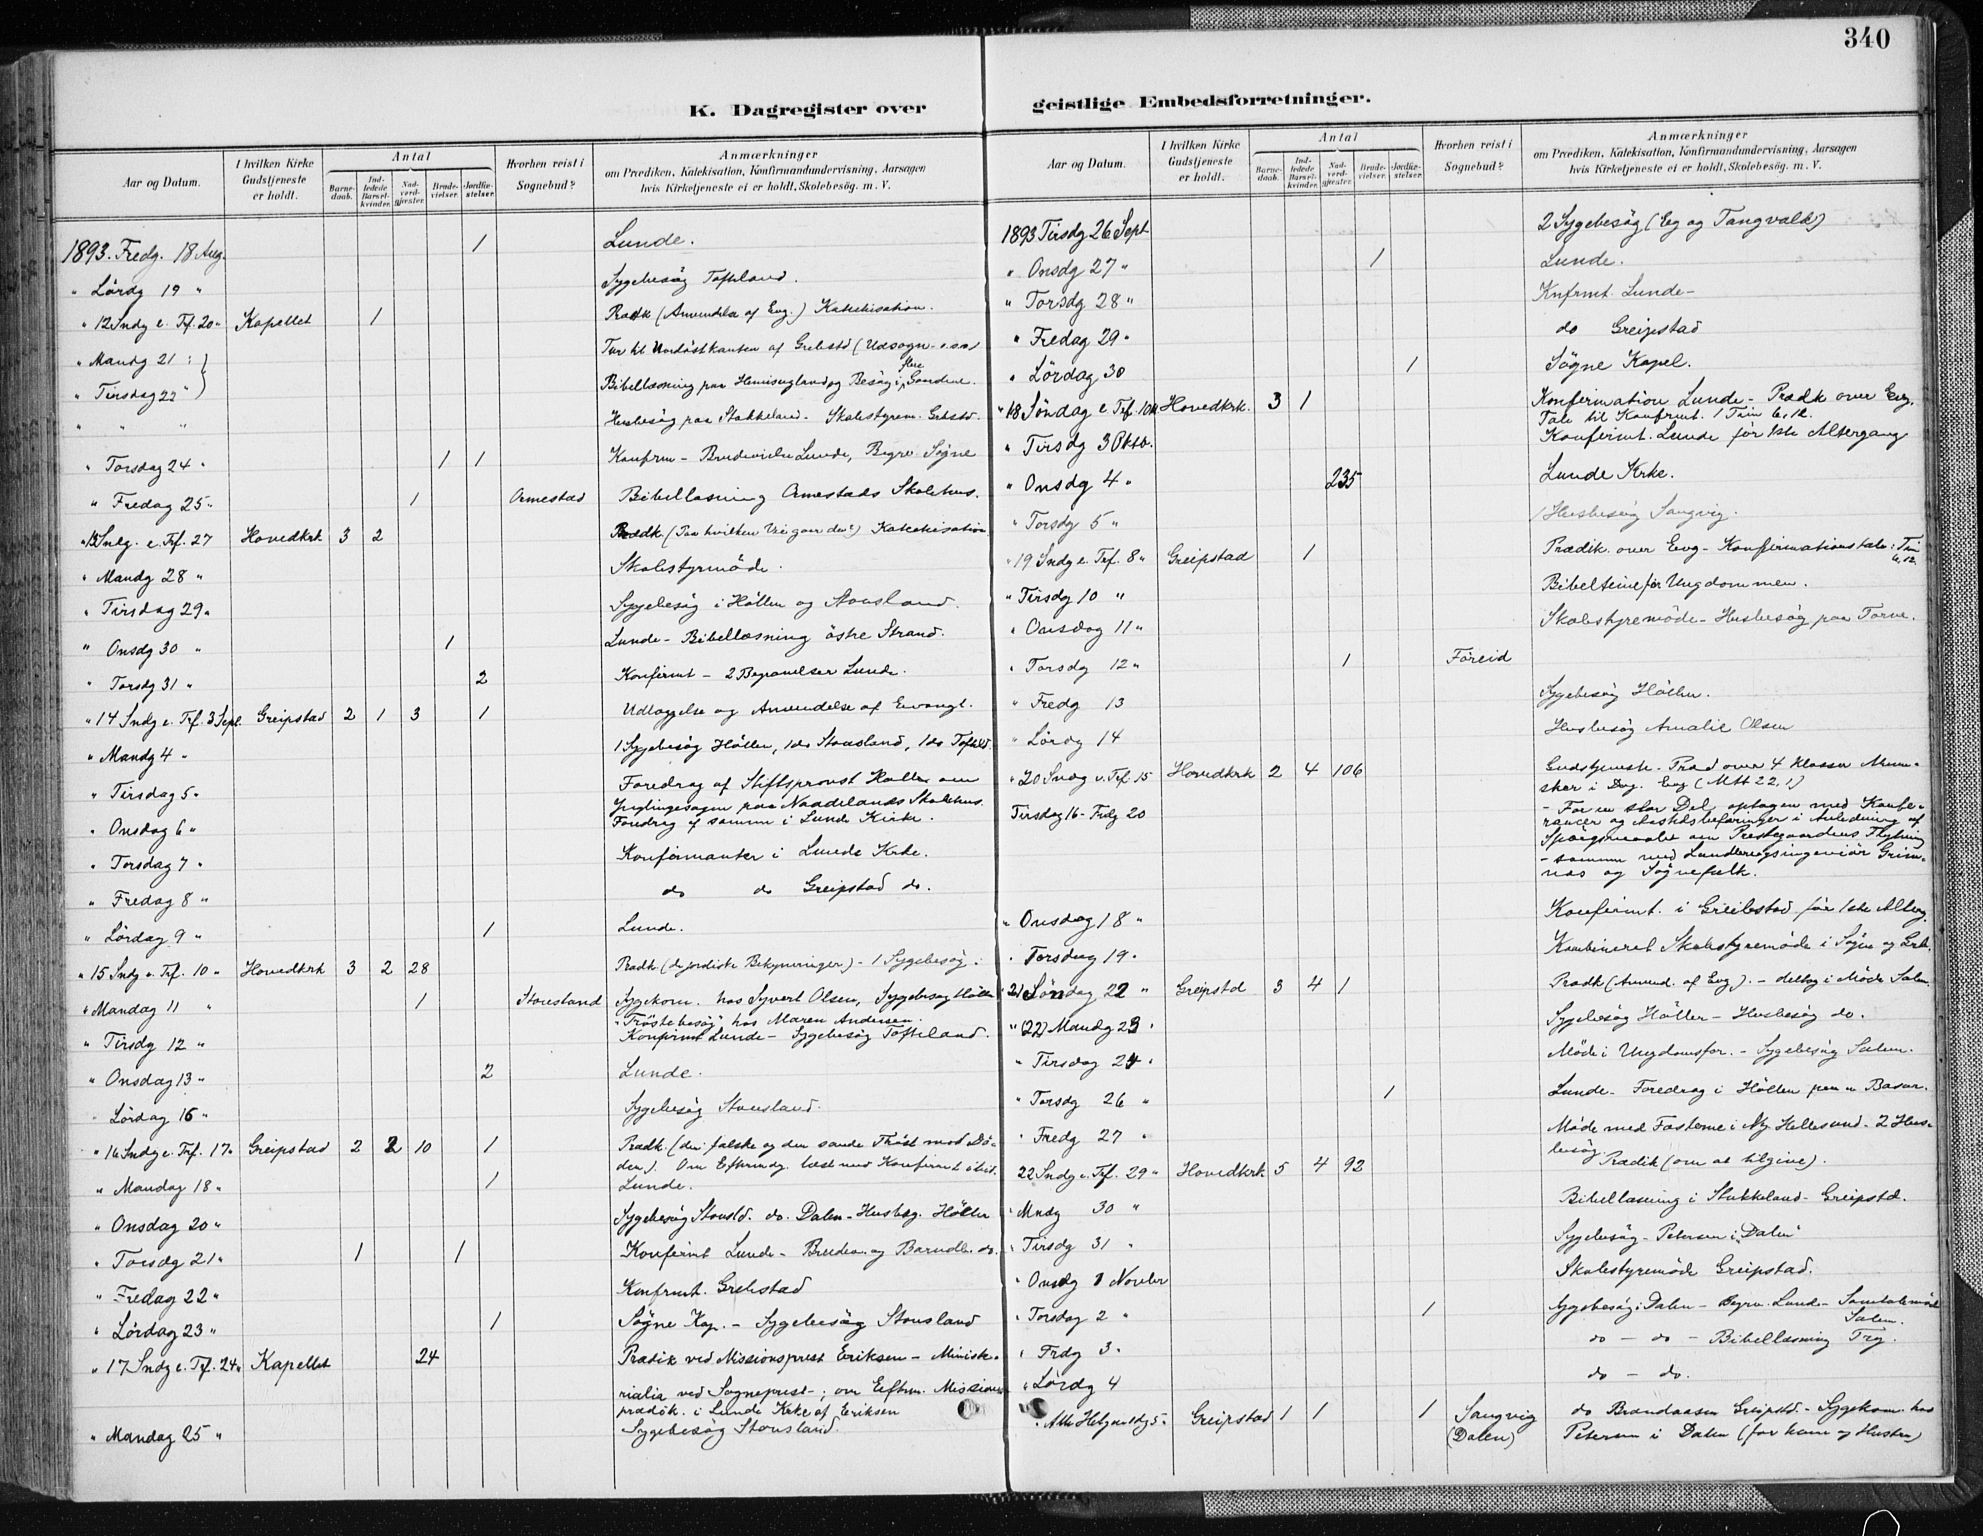 340
K. Dagregister over
geistlige Embedsforretninger.
Aar og Datum.
I hvilken Kirke Gudstjeneste er holdt.
Antal
Barnedaab.
Indledede Barselkvinder.
Nadverdgjester.
Brudevielser.
Jordfæstelser.
Hvorhen reist i Sognebud?
Anmærkninger
om Prædiken, Katekisation, Konfirmandundervisning, Aarsagen
hvis Kirketjeneste ei er holdt, Skolebesög. m. V.
1893. Fredg. 18 Aug. 1 Lunde.
" Lördg 19 " Sygebesög Tofteland.
" 12 Sndg e. Trf. 20 " Kapellet 1 Prædk (Anvendelse af Evg.) Katekisation.
" Mandg 21 : Tur til Nordöstkanten af Grebstd (Udsogn
" Tirsdag 22 " Bibellæsning paa og Besög i flere Gaardene.
" " " Husbesög paa Stokkeland. Skolestyrem. Grebstd.
" Torsdag 24 " 1 1 Konfrm - Brudevielse Lunde, Begrv. Sögne
" Fredag 25 " 1 Ormestad Bibellæsning Ormestads Skolehus.
" 13 Sndg. e. Trf. 27 Hovedkrk 3 2 Prædk. (Paa hvilken Vei gaar du?) Katekisation
" Mandg 28 " Skolestyrmöde.
" Tirsdag 29 " Sygebesög i Höllen og Stousland.
" Onsdg 30 " 1 Lunde - Bibellæsning östre Strand.
" Torsdg 31 " 2 Konfirmt - 2 Begravelser Lunde.
" 14 Sndg e. Trf. 3 Sept. Greipstad 2 1 3 1 Udlæggelse og Anvendelse af Evangl.
" Mandg 4 " 1 Sygebesög Höllen, 1 do Stousland, 1 do Toftld.
" Tirsdag 5 " Foredrag af Stiftsprovst om
Ynglingesagen paa Naadelands Skolehus.
" Onsdag 6 " Foredrag af samme i Lunde Kirke.
" Torsdag 7 " Konfirmanter i Lunde Krke.
" Fredag 8 " do do Greipstad do.
" Lördag 9 " 1 Lunde.
" 15 Sndg e. Trf. 10 " Hovedkrk 3 2 28 Prædk (de jordiske Bekymringer) - 1 Sygebesög.
" Mandag 11 " 1 Stousland Sygekom. hos Syvert Olsen, Sygebesög Höllen
"Tröstebesög" hos Maren Andersen.
" Tirsdg 12 " Konfirmt Lunde - Sygebesög Tofteland.
" Onsdag 13 " 2 Lunde.
" Lördag 16 " Sygebesög Stousland.
" 16 Sndg e. Trf. 17 " Greipstad 2 2 10 1 Prædk. (den falske og den sande Tröst mod Dö-
den). Om Eftermdg. læst med Konfirmt
" Mandag 18 " 1 Lunde.
" Onsdag 20 " Sygebesög Stousld. do. Dalen - Husbsg. Höllen
" Torsdg 21 " 1 1 Konfirmt Lunde - Brudev. og Barnedb. do.
" Fredag 22 " Konfrmt. Grebstad
" Lördag 23 " 1 Sögne Kap. - Sygebesög Stousland
" 17 Sndg e. Trf. 24 " Kapellet 24 Prædik ved Missionsprest Eriksen - Ministe-
rialia ved Sogneprest -; om Efterm. Missions-
prædik. i Lunde Krke af Eriksen
" Mandag 25 " Sygebesög Stousland.
1893 Tirsdg 26 Sept 2 Sygebesög (Eg og Tangvald)
" Onsdg 27 " 1 Lunde.
" Torsdg 28 " Knfrmt. Lunde -
" Fredag 29 " do Greipstad
" Lördag 30 1 Sögne Kapel.
" 18 Söndag e. Trf. 1 Okt Hovedkrk. 3 1 Konfirmation Lunde - Prædk over Evg.
Tale til Konfrmt. 1 Tim 6,12.
" Tirsdg 3 Oktb. Konfirmt. Lunde för 1ste Altergang
" Onsdg 4 " 235 Lunde Krke.
" Torsdg 5 " 1 Husbesög Sangvig.
" 19 Sndg e. Trf. 8 " Greipstad 1 Prædik. over Evg - Konfirmationstale: 1 Tim 6,12.
" Tirsdg 10 " Bibeltime for Ungdommen.
" Onsdag 11 " Skolestyremöde - Husbesög paa Torve.
" Torsdg 12 " 1 Föreid
" Fredg 13 Sygebesög Höllen.
" Lördg 14 Husbesög Amalie Olsen
" 20 Sndg e. Trf. 15 Hovedkrk 2 4 106 Gudstjenste. Præd over 4 Klasser Menne-
sker i Evg (Mtt 22,1)
Tirsdag 16 - Frdg 20 - For en stor Del optagen med Konfe-
rancer og Aastedsbefaringer i Anledning af
Spörgsmaalet om Prestegaardens Flytning
- sammen med Landbrugsingeniör Grim-
nes og Sögnefolk.
" Onsdag 18 " Konfirmt. i Greibstad för 1ste Alterg.
" Torsdag 19 " Kombineret Skolestyremöde i Sögne og Greb.
" 21 Söndag 22 " Greipstd 3 4 1 Prædk (Anvend. af Evg). - deltog i Möde Salem.
" (22) Mandg 23 " Sygebesög Höllen - Husbesög do.
" Tirsdag 24 " Möde i Ungdomsfor. - Sygebesög Salem.
" Torsdg 26 " 1 Lunde - Foredrag i Höllen paa en Basar.
" Fredg 27 " Möde med Fosterne i Ny Hellesund - 2 Hus-
besög.
22 Sndg e. Trf. 29 " Hovedkrk 5 4 92 Prædik (om at tilgive).
" Mndg 30 " Bibellæsning i Stokkeland - Greipstd.
" Tirsdg 31 " Sygebesög - Petersen i "Dalen"
" Onsdg 1 Novebr Skolestyremöde Greipstad.
" Torsdag 2 " 1 Sygebesög i Dalen - Begrv. Lunde - Samtalemöde
Salem.
" Frdg 3 " do - do - Bibellæsning Trg.
" Lördg 4 do - do.
" Alle Helgensdg 5 " Greipstad 1 1 1 Sangvig (Dalen) do Brandaasen Greipstd - Sygekom. hos
Petersen i Dalen (for ham og Hustru)